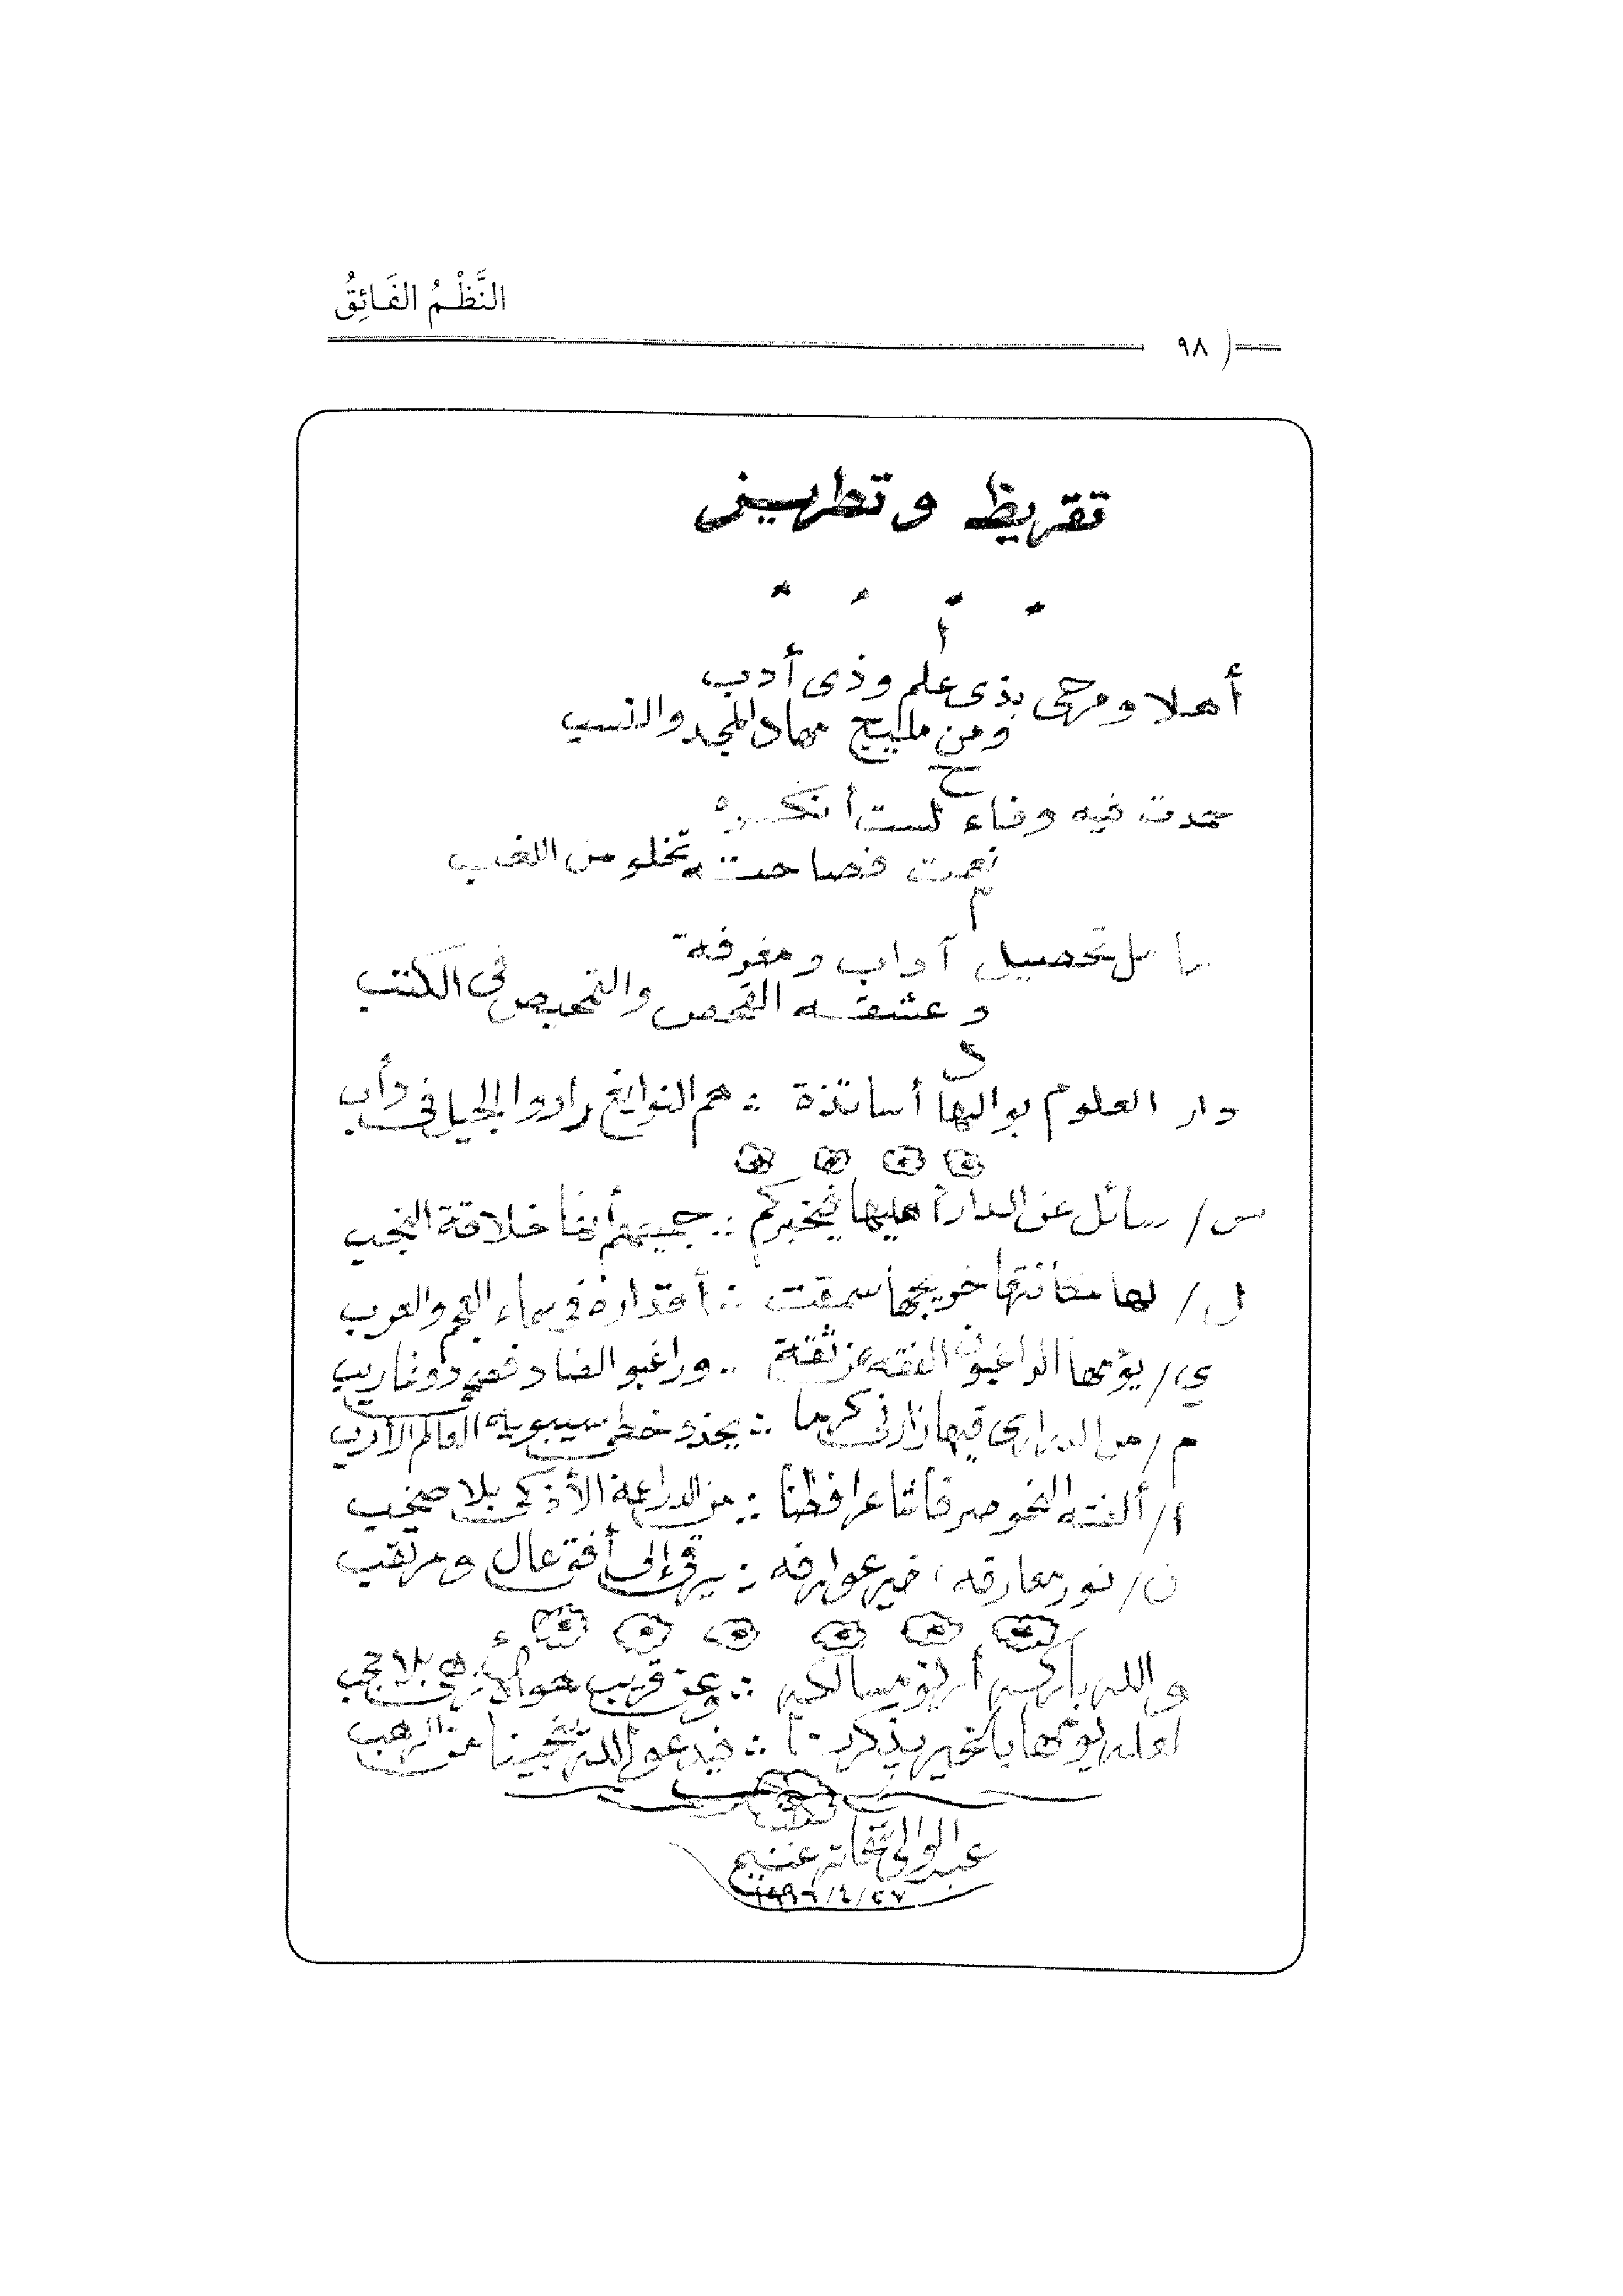 النَّظْمُ الفَائِقُ
٩٨
تقريظ وتطريز
أ
أهلا ومرحى بذى علم وذى أدب
ومن مليج مهاد المجد والنسب
ح
حمدت فيه وفاء لست أنكره
نعمت فصاحته تخلو من اللغب
م
ما مل تحصيل آداب ومعرفة
وعشقه الفحص والتمحيص فى الكتب
د
دار العلوم بواليها أساتذة ∴ هم النوابغ رادوا الجيل فى دأب
س / سائل عن الدار أهليها فيخبركم ∴ جميعهم أنها خلاقة النجب
ل / لها مكانتها خريجها سمقت ∴ أقداره فى سماء العجم والعرب
ي / يؤمها الراغبون الفقه عن ثقة ∴ وراغبو الضاد فهى دونما ريب
م / من الدرارى فيها زارنى كرما ∴ يحذو خطى سيبويه العالم الأرب
ا / ألفته النحو صرفا شاعرا فطنا ∴ من الدراعمة الأذكى بلا صخب
ن / نور معارفه، خير عوارفه ∴ يرقى إلى أفق عال ومرتقب
والله بارئه أرجو مسالكه ∴ وعن قريب هو الأزهى بلا عجب
لعله يومها بالخير يذكرنا ∴ فيدعو الله تنجينا من الرهب
عبد الوالى شحاته غنيم
١٩٩٦/٤/٢٧